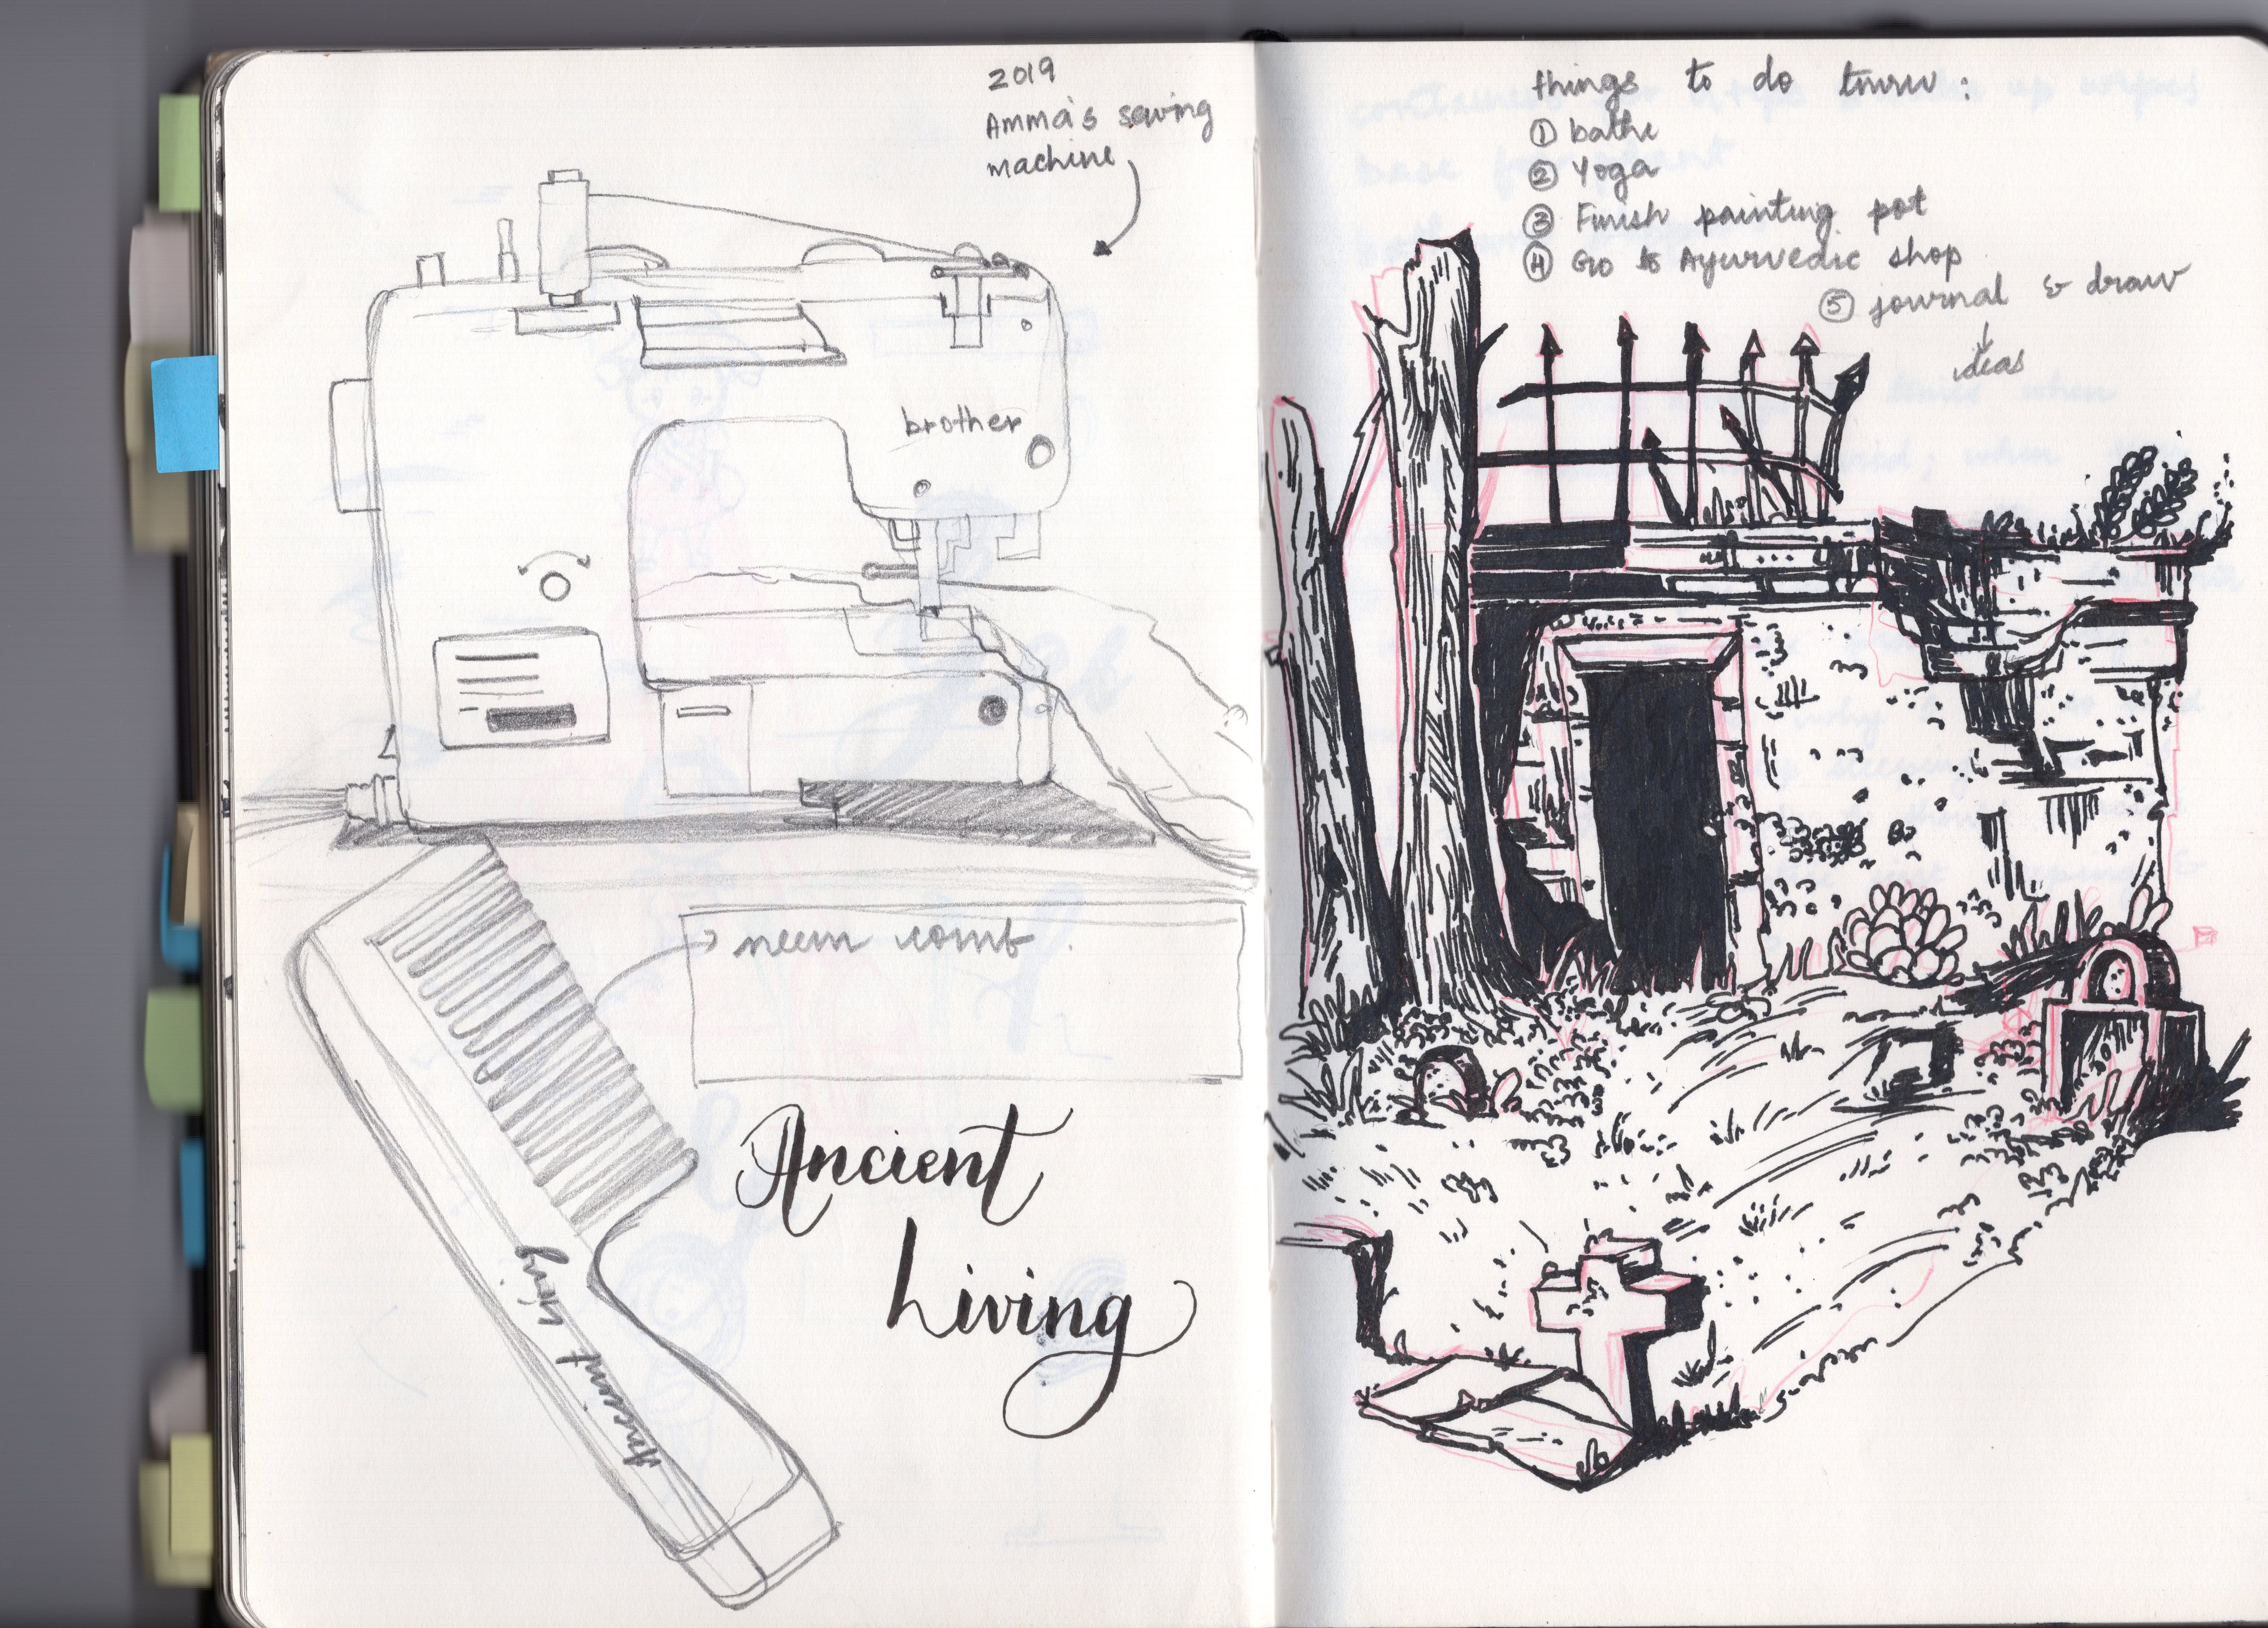 2019
Amma's sewing
machine
brother
neem comb.
Ancient Living
Ancient
Living
things to do tmrw:
① bathe
② Yoga
③ Finish painting pot
④ Go to Ayurvedic shop
⑤ journal & draw
ideas